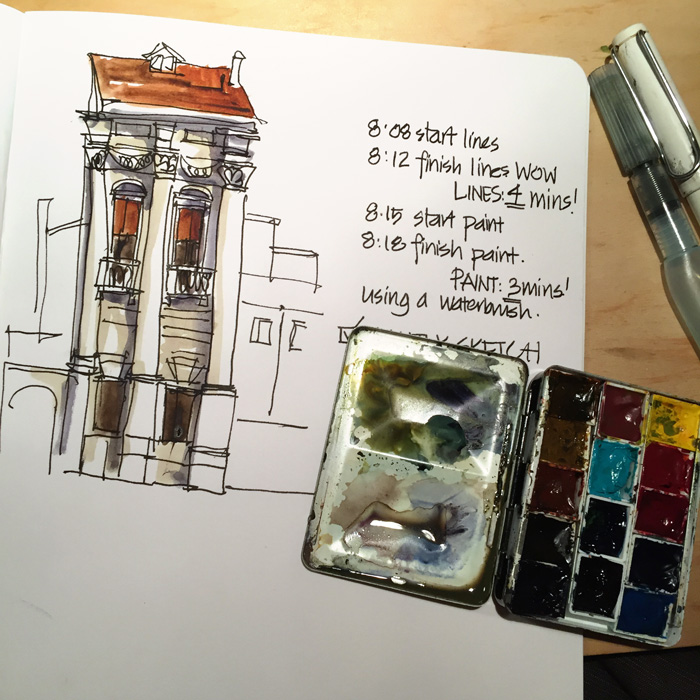 8:08 start lines
8:12 finish lines WOW
LINES: 4 mins!
8.15 start paint
8:18 finish paint.
PAINT: 3mins!
using a waterbrush.
SKETCH